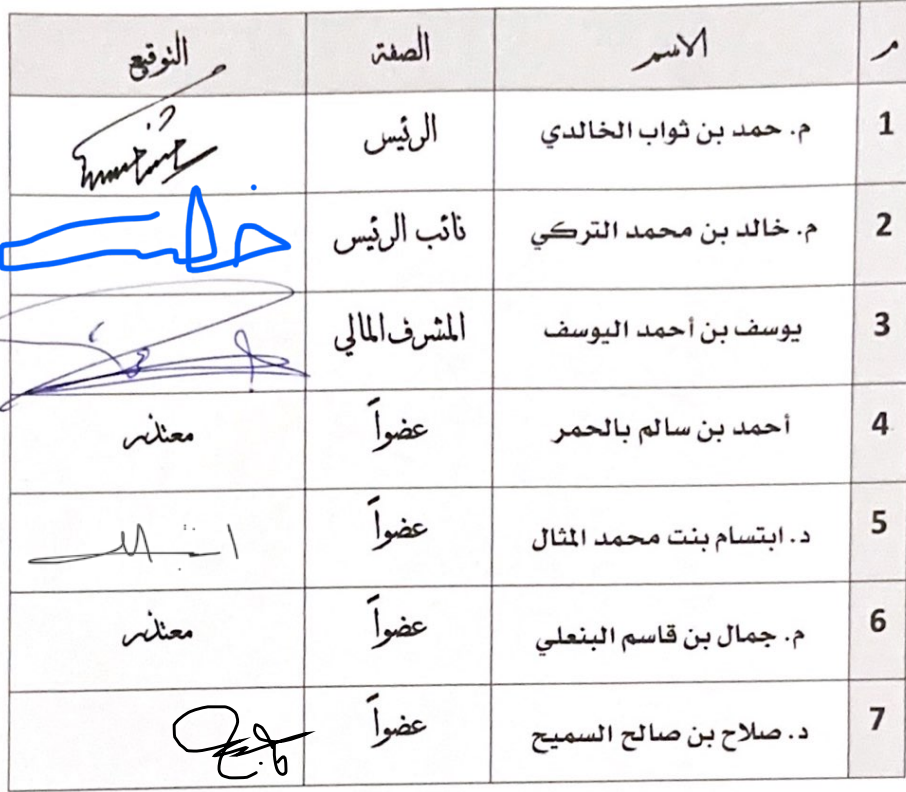 م الاسم الصفة التوقيع
1 م. حمد بن ثواب الخالدي الرئيس
2 م. خالد بن محمد التركي نائب الرئيس
3 يوسف بن أحمد اليوسف المشرف المالي
4 أحمد بن سالم بالحمر عضواً معتذر
5 د. ابتسام بنت محمد المثال عضواً
6 م. جمال بن قاسم البنعلي عضواً معتذر
7 د. صلاح بن صالح السميح عضواً